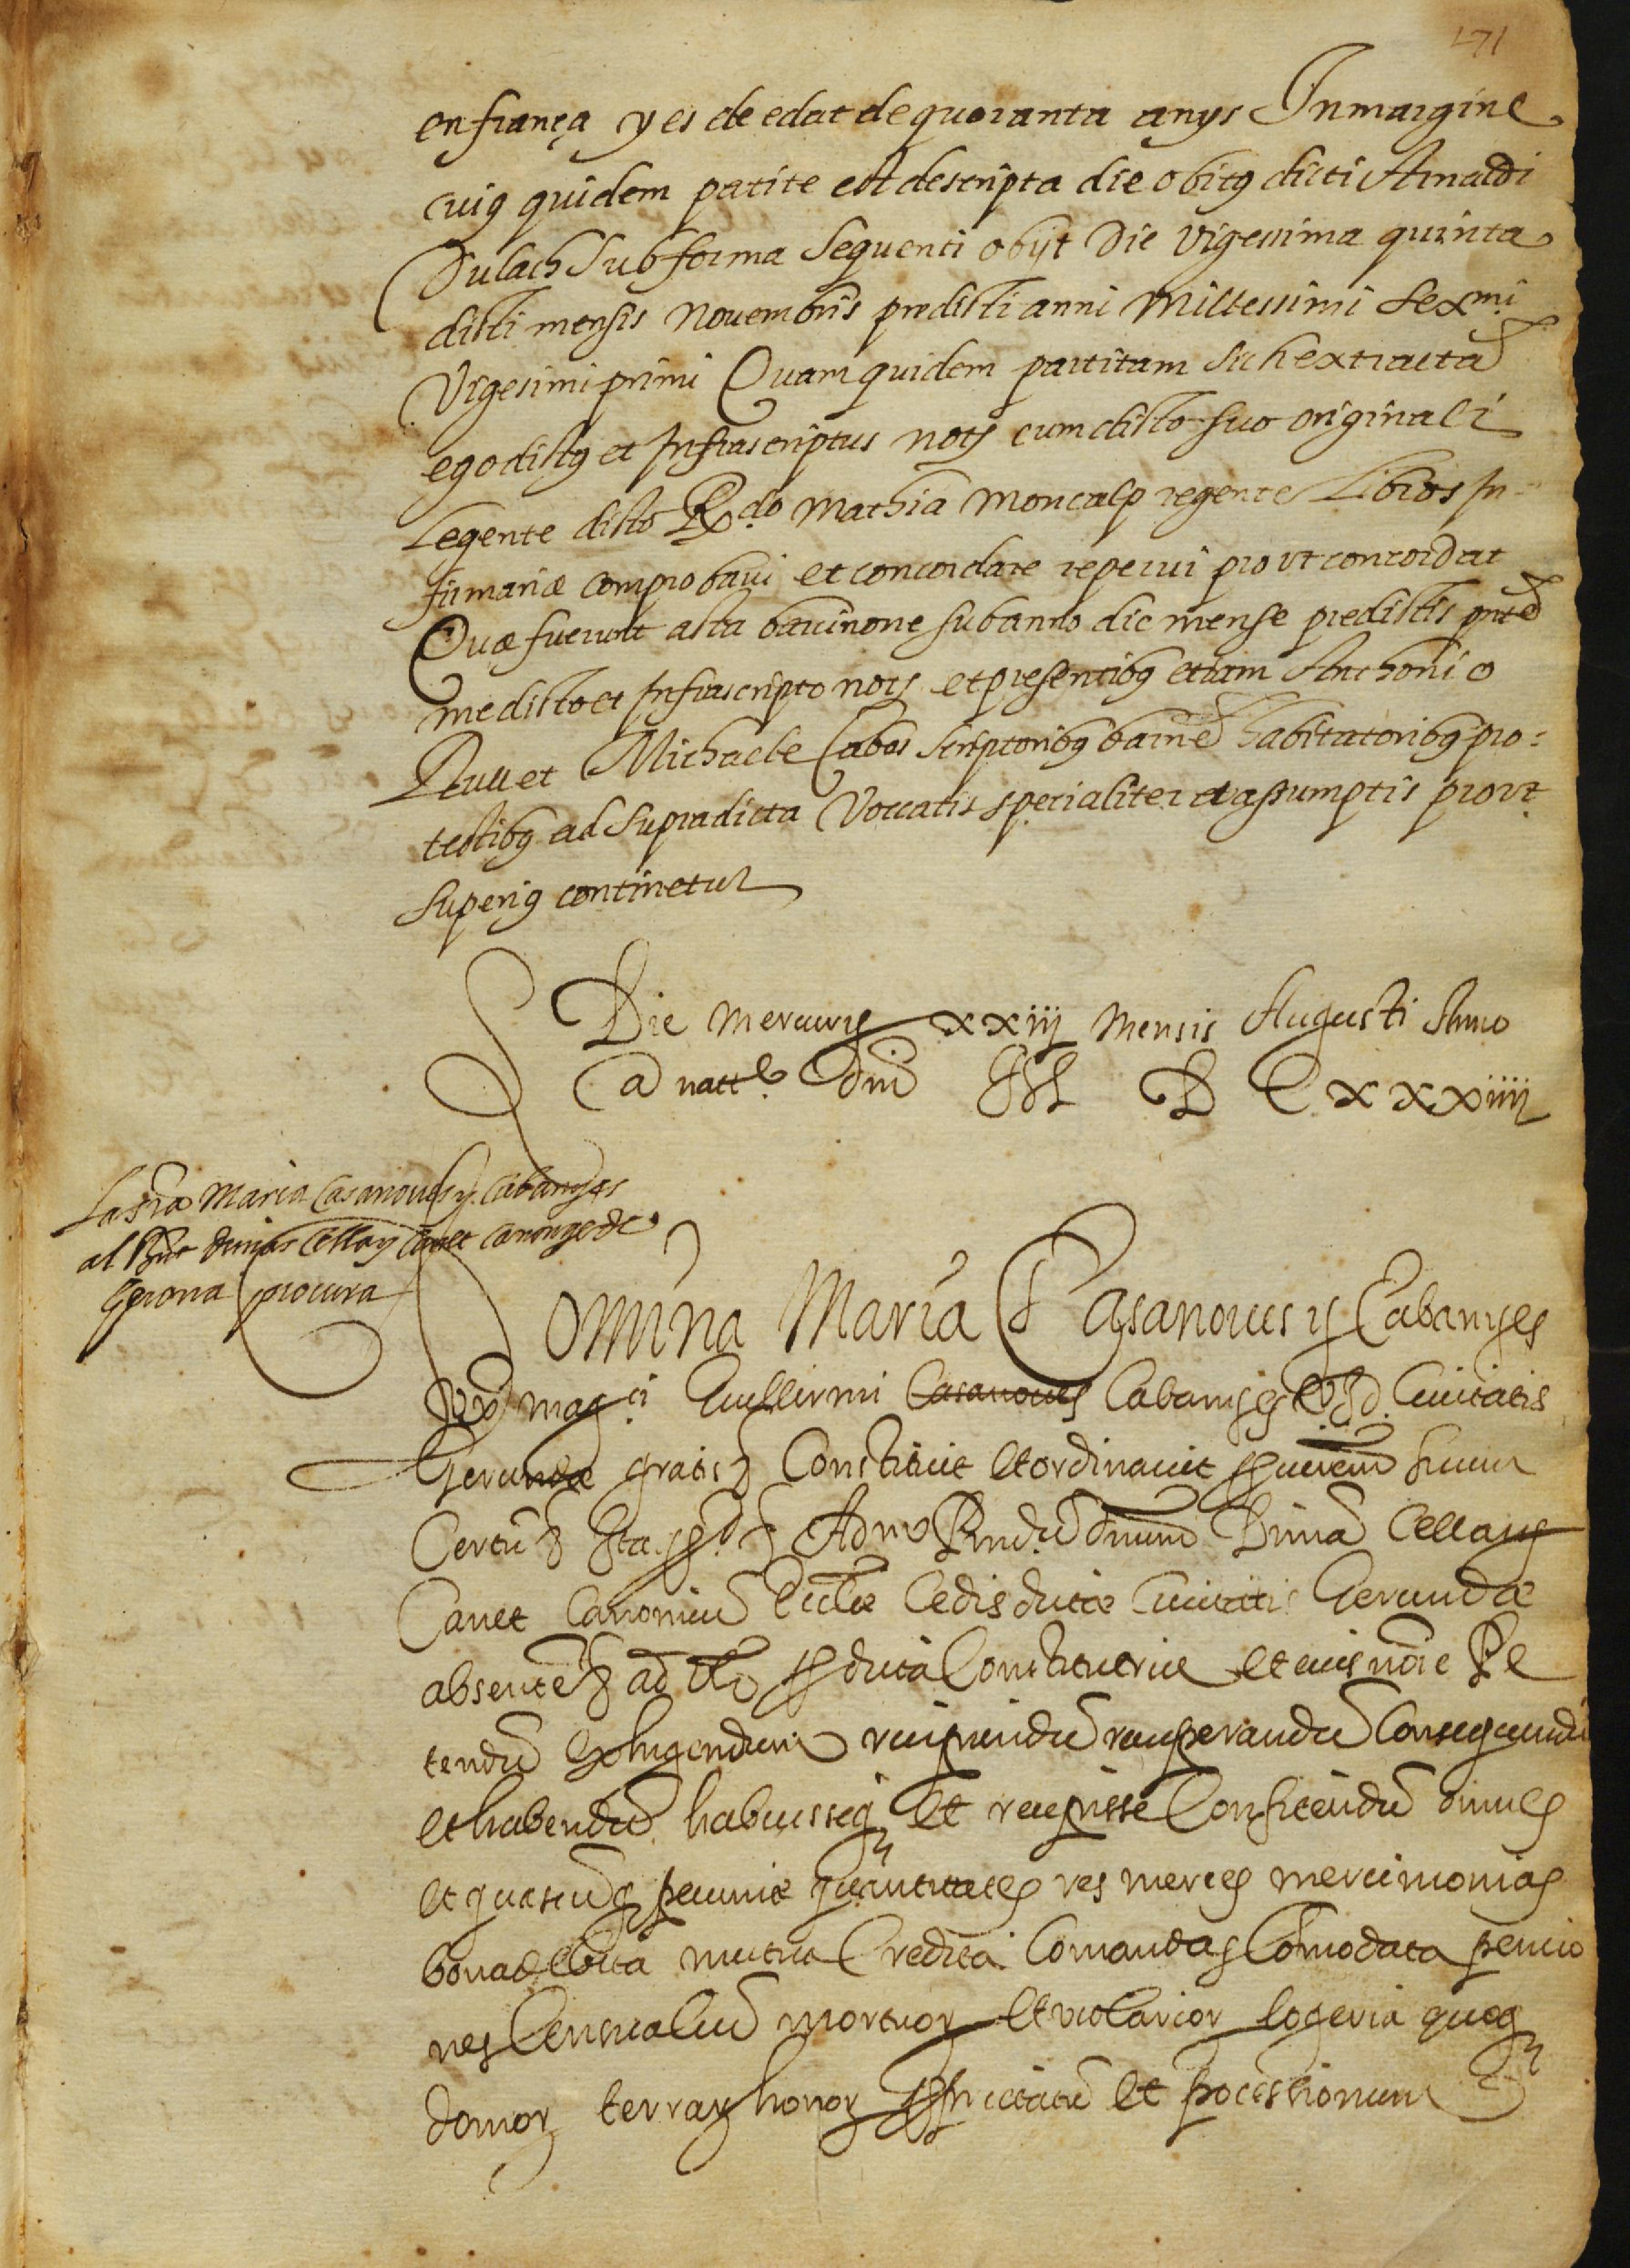 471
en frança y es de edat de quoranta anys In margine
cuiq quidem patite est descripta die obitq dicti Arnaldi
Dulach sub forma sequenti obijt Die vigessima quinta
dicti mensis nouembris predicti anni millessimi sexmi.
Vigesimi primi Quam quidem partitam sich extracta
ego dictq et Infrascriptus nots cum dicto suo originali
Legente dicto R.do Mathia Moncalp regente Libros In-
firmariæ comprobaui et concordare reperui prout concordat
Quæ fuerunt acta barcinone sub anno die mense predictis pnte
me dicto et Infrascripto nots et presentibq etiam Anthonio
Ruu et Michaele Cabos scriptoribq barne habitatoribq pro:
testibq ad supradicta Voccatis specialiter et assumptis prout
superiq continetur
Die mercurij xxiij mensis Augusti Anno
a natt.e Dni M D C xxxiiij
La sra Maria Casanoues y Cabanyes
al Rnt dimas Cellay Canet canonge de
Gerona procura
Domina Maria Casanoues y Cabanyes
vx magci Guillermi Casanoues Cabanyes Ciuitatis
Gerundæ gratis Constituit et ordinauit suum
Certu Ita Adm Rndu dnum Dima Cellay
Canet Canonicu Eccliæ Sedis dictæ Ciuitatis Gerundæ
absente ad p dicta Constituente et eius noie Pe
tendu exhigendum recipiendu recuperandu Consequendu
et habendu habuisseq et recepisse Confitendu omnes
et quascuq pecuniæ quantitates res merces mercimonias
bona debita mutua Credita Comandas Comodata pencio
nes Censualiu mortuor et violarior logeria quoq
domor terrar honor et possessionum